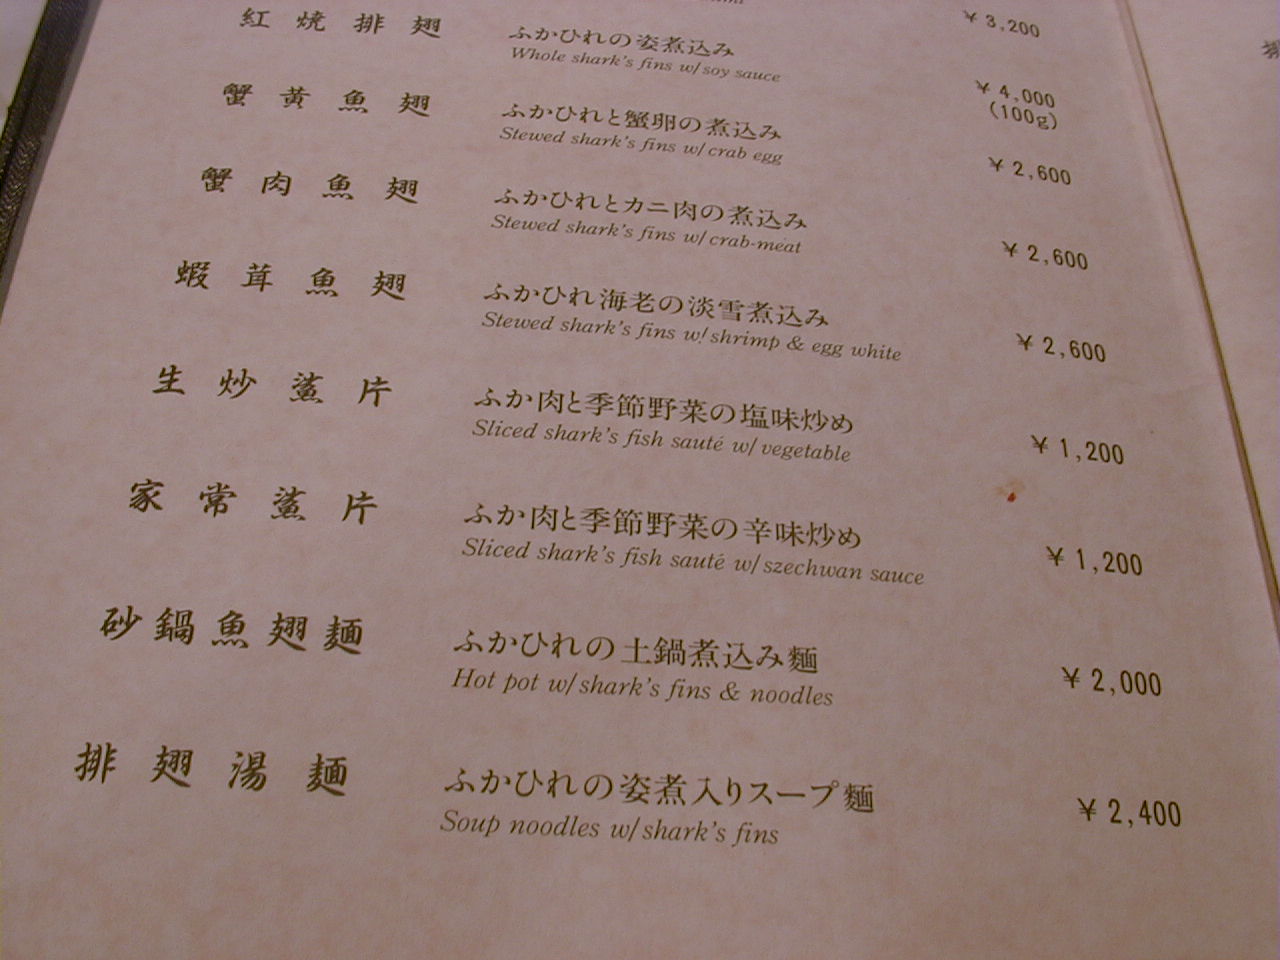 ¥3,200
紅焼排翅 ふかひれの姿煮込み ¥4,000
Whole shark's fins w/soy sauce (100g)
蟹黄魚翅 ふかひれと蟹卵の煮込み ¥2,600
Stewed shark's fins w/crab egg
蟹肉魚翅 ふかひれとカニ肉の煮込み ¥2,600
Stewed shark's fins w/crab-meat
蝦茸魚翅 ふかひれ海老の淡雪煮込み ¥2,600
Stewed shark's fins w/shrimp & egg white
生炒鯊片 ふか肉と季節野菜の塩味炒め ¥1,200
Sliced shark's fish sauté w/vegetable
家常鯊片 ふか肉と季節野菜の辛味炒め ¥1,200
Sliced shark's fish sauté w/szechwan sauce
砂鍋魚翅麺 ふかひれの土鍋煮込み麺 ¥2,000
Hot pot w/shark's fins & noodles
排翅湯麺 ふかひれの姿煮入りスープ麺 ¥2,400
Soup noodles w/shark's fins